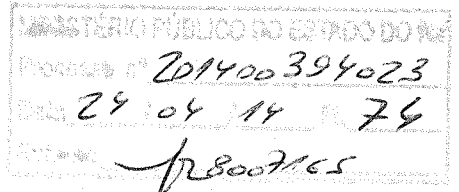 MINISTÉRIO PÚBLICO DO ESTADO DO
Processo nº 201400394023
Data 24 / 04 / 14 74
8007165